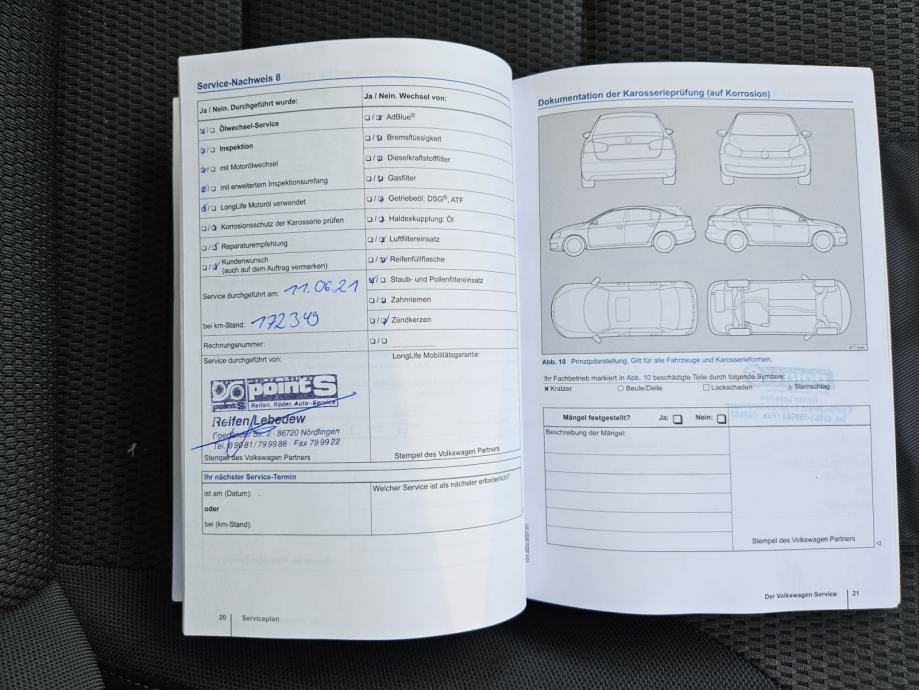 Service-Nachweis 8
Ja / Nein. Durchgeführt wurde:
☒/☐ Ölwechsel-Service
☒/☐ Inspektion
☒/☐ mit Motorölwechsel
☒/☐ mit erweitertem Inspektionsumfang
☒/☐ LongLife Motoröl verwendet
☐/☒ Korrosionsschutz der Karosserie prüfen
☐/☒ Reparaturempfehlung
☐/☒ Kundenwunsch
(auch auf dem Auftrag vermerken)
Service durchgeführt am: 11.06.21
bei km-Stand: 172349
Rechnungsnummer:
Service durchgeführt von:
point S
point S
Reifen, Räder, Auto-Service
Reifen Lebedew
Str. 2 - 86720 Nördlingen
Tel. 09081/799988 - Fax 799922
Stempel des Volkswagen Partners
Ja / Nein. Wechsel von:
☐/☒ AdBlue®
☐/☒ Bremsflüssigkeit
☐/☒ Dieselkraftstofffilter
☐/☒ Gasfilter
☐/☒ Getriebeöl: DSG®, ATF
☐/☒ Haldexkupplung: Öl
☐/☒ Luftfiltereinsatz
☐/☒ Reifenfüllflasche
☒/☐ Staub- und Pollenfiltereinsatz
☐/☒ Zahnriemen
☐/☒ Zündkerzen
☐/☐ ....................
LongLife Mobilitätsgarantie:
Stempel des Volkswagen Partners
Ihr nächster Service-Termin
ist am (Datum):
oder
bei (km-Stand):
Welcher Service ist als nächster erforderlich?
20 Serviceplan
Dokumentation der Karosserieprüfung (auf Korrosion)
Abb. 10 Prinzipdarstellung. Gilt für alle Fahrzeuge und Karosserieformen.
Ihr Fachbetrieb markiert in Abb. 10 beschädigte Teile durch folgende Symbole:
x Kratzer ○ Beule/Delle ☐ Lackschaden △ Steinschlag
Mängel festgestellt? Ja: ☐ Nein: ☐
Beschreibung der Mängel:
Stempel des Volkswagen Partners
Der Volkswagen Service 21